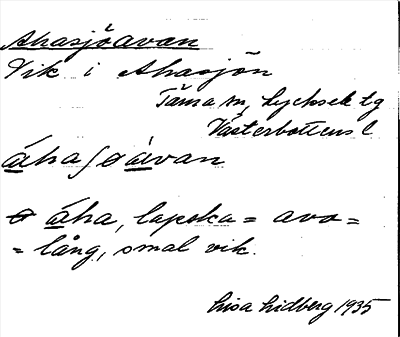 Ahasjöavan
Vik i Ahasjön
Tärna sn, Lycksele tg
Västerbottens l
áhasjoávan
áha, lapska = ava =
= lång, smal vik.
Lisa Lidberg 1935